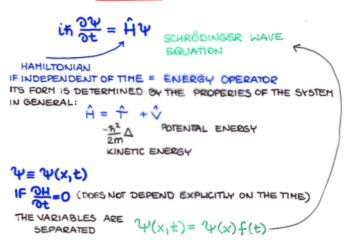 iħ ∂Ψ/∂t = ĤΨ
SCHRÖDINGER WAVE
EQUATION
HAMILTONIAN
IF INDEPENDENT OF TIME = ENERGY OPERATOR
ITS FORM IS DETERMINED BY THE PROPERIES OF THE SYSTEM
IN GENERAL:
Ĥ = T̂ + V̂
-ħ²/2m Δ POTENTIAL ENERGY
KINETIC ENERGY
Ψ ≡ Ψ(x,t)
IF ∂H/∂t = 0 (DOES NOT DEPEND EXPLICITLY ON THE TIME)
THE VARIABLES ARE
SEPARATED Ψ(x,t) = Ψ(x) f(t)